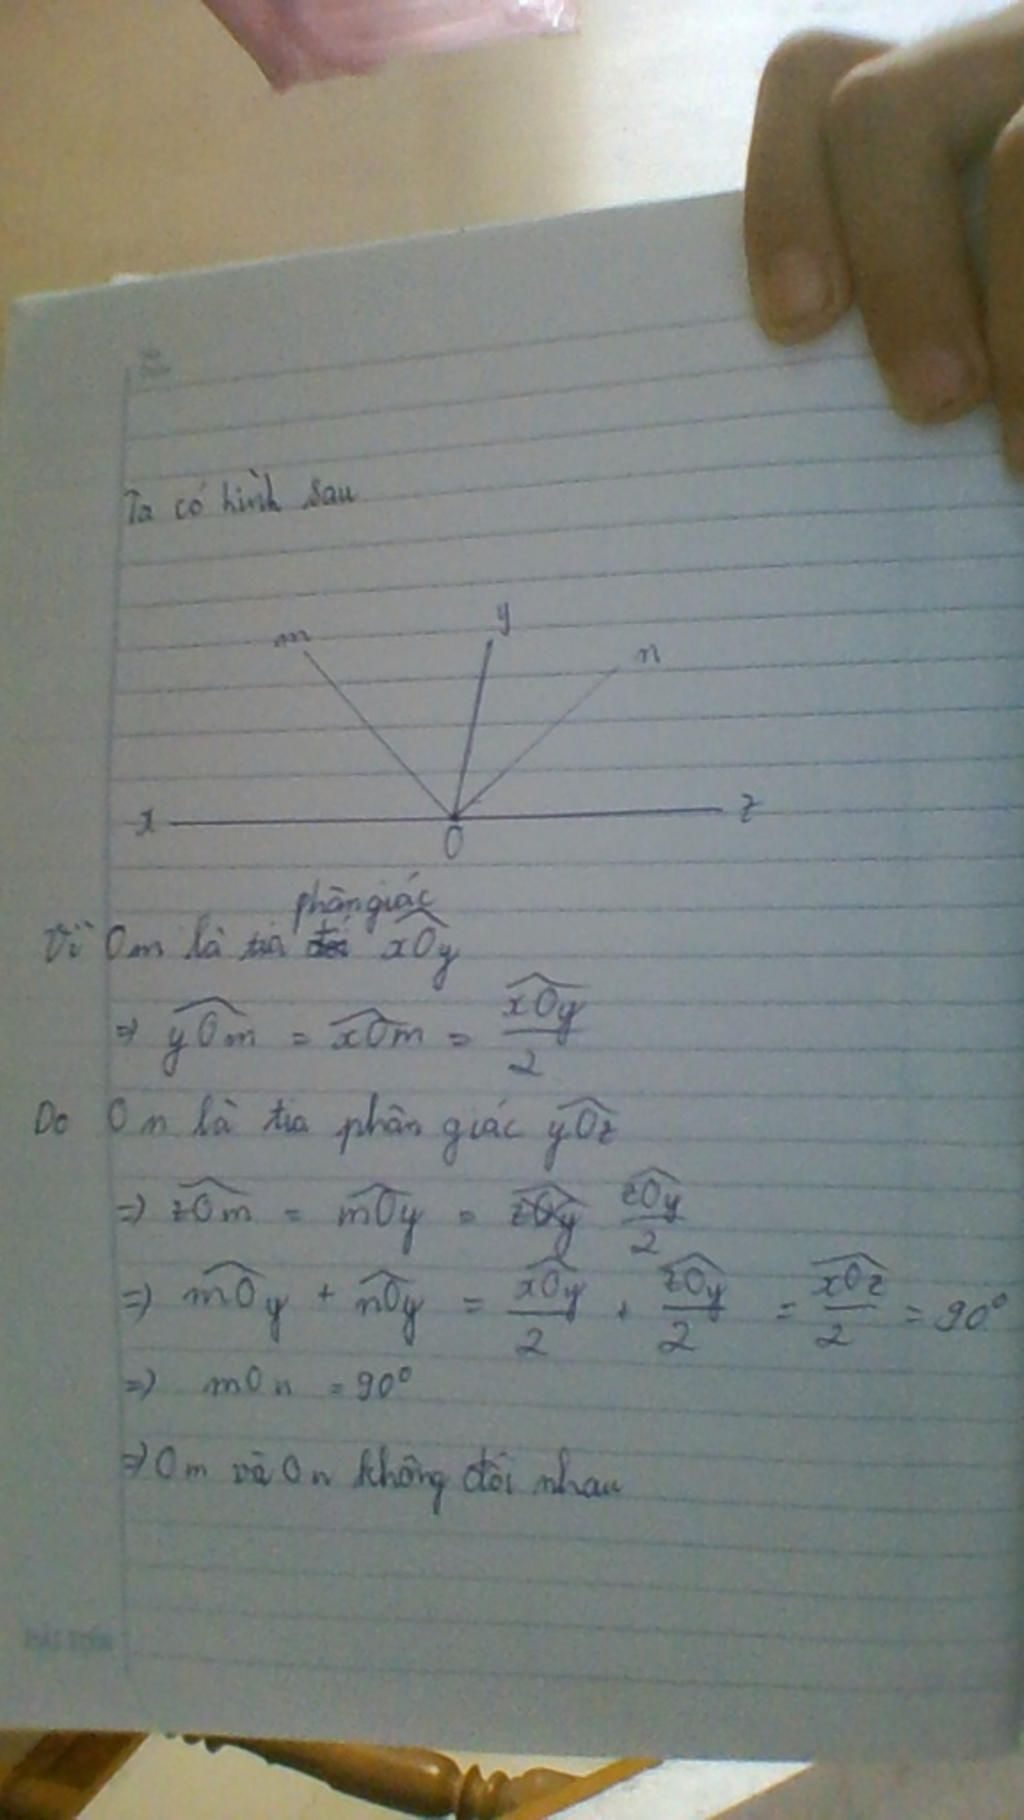 Ta có hình sau
m y n
x O z
phân giác
Vì Om là tia xOy
=> yOm = xOm = xOy/2
Do On là tia phân giác yOz
=> zOm = mOy = zOy zOy/2
=> mOy + nOy = xOy/2 + zOy/2 = xOz/2 = 90°
=> mOn = 90°
=> Om và On không đối nhau